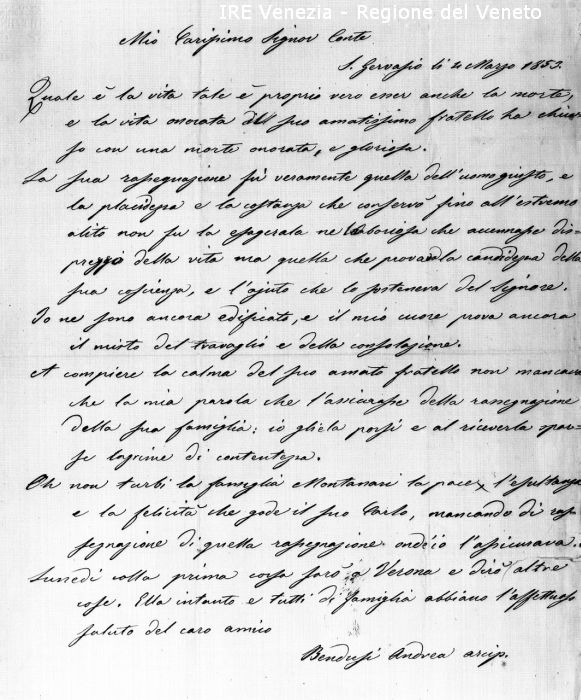 IRE Venezia - Regione del Veneto
Mio Carissimo Signor Conte
S. Gervasio li 4 Marzo 1853.
Quale è la vita tale è proprio vero esser anche la morte,
e la vita onorata del suo amatissimo fratello ha chiu-
so con una morte onorata, e gloriosa.
La sua rassegnazione fu veramente quella dell'uomo giusto, e
la placidezza e la costanza che conservò fino all'estremo
alito non fu la esagerata ne la boriosa che accennasse dis-
prezzo della vita ma quella che provava la candidezza della
sua coscienza, e l'ajuto che lo sosteneva del Signore.
Io ne sono ancora edificato, e il mio cuore prova ancora
il misto del travaglio e della consolazione.
A compiere la calma del suo amato fratello non mancava
che la mia parola che l'assicurasse della rassegnazione
della sua famiglia: io gliela porsi e al riceverla spar-
se lagrime di contentezza.
Oh non turbi la famiglia Montanari la pace, l'esultanza
e la felicità che gode il suo Carlo, mancando di ras-
segnazione di quella rassegnazione ond'io l'assicurava.
Lunedì colla prima corsa sarò a Verona e dirò altre
cose. Ella intanto e tutti di famiglia abbiano l'affettuoso
saluto del caro amico
Bendusi Andrea arcip.